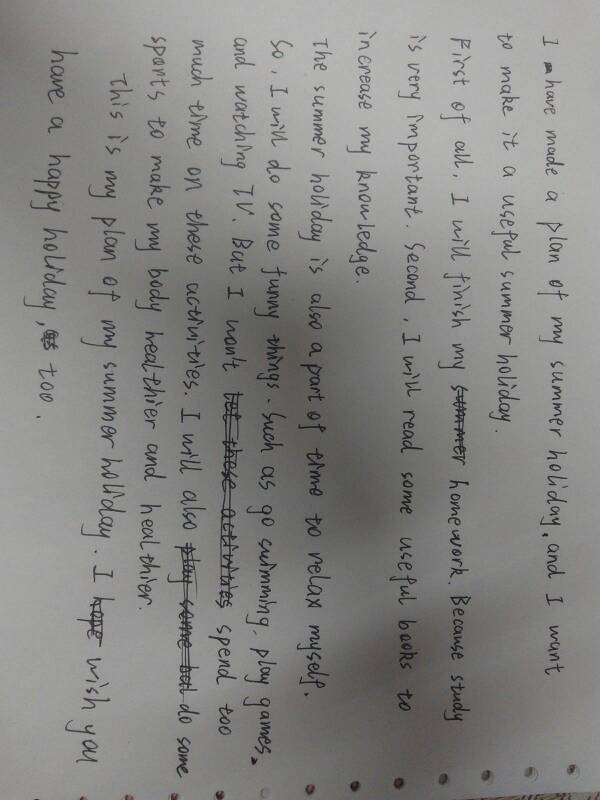 I have made a plan of my summer holiday, and I want
to make it a useful summer holiday.
First of all, I will finish my summer homework. Because study
is very important. Second, I will read some useful books to
increase my knowledge.
The summer holiday is also a part of time to relax myself.
So, I will do some funny things. Such as go swimming, play games.
and watching TV. But I won't let these activities spend too
much time on these activities. I will also play some but do some
sports to make my body healthier and healthier.
This is my plan of my summer holiday. I hope wish you
have a happy holiday, too.